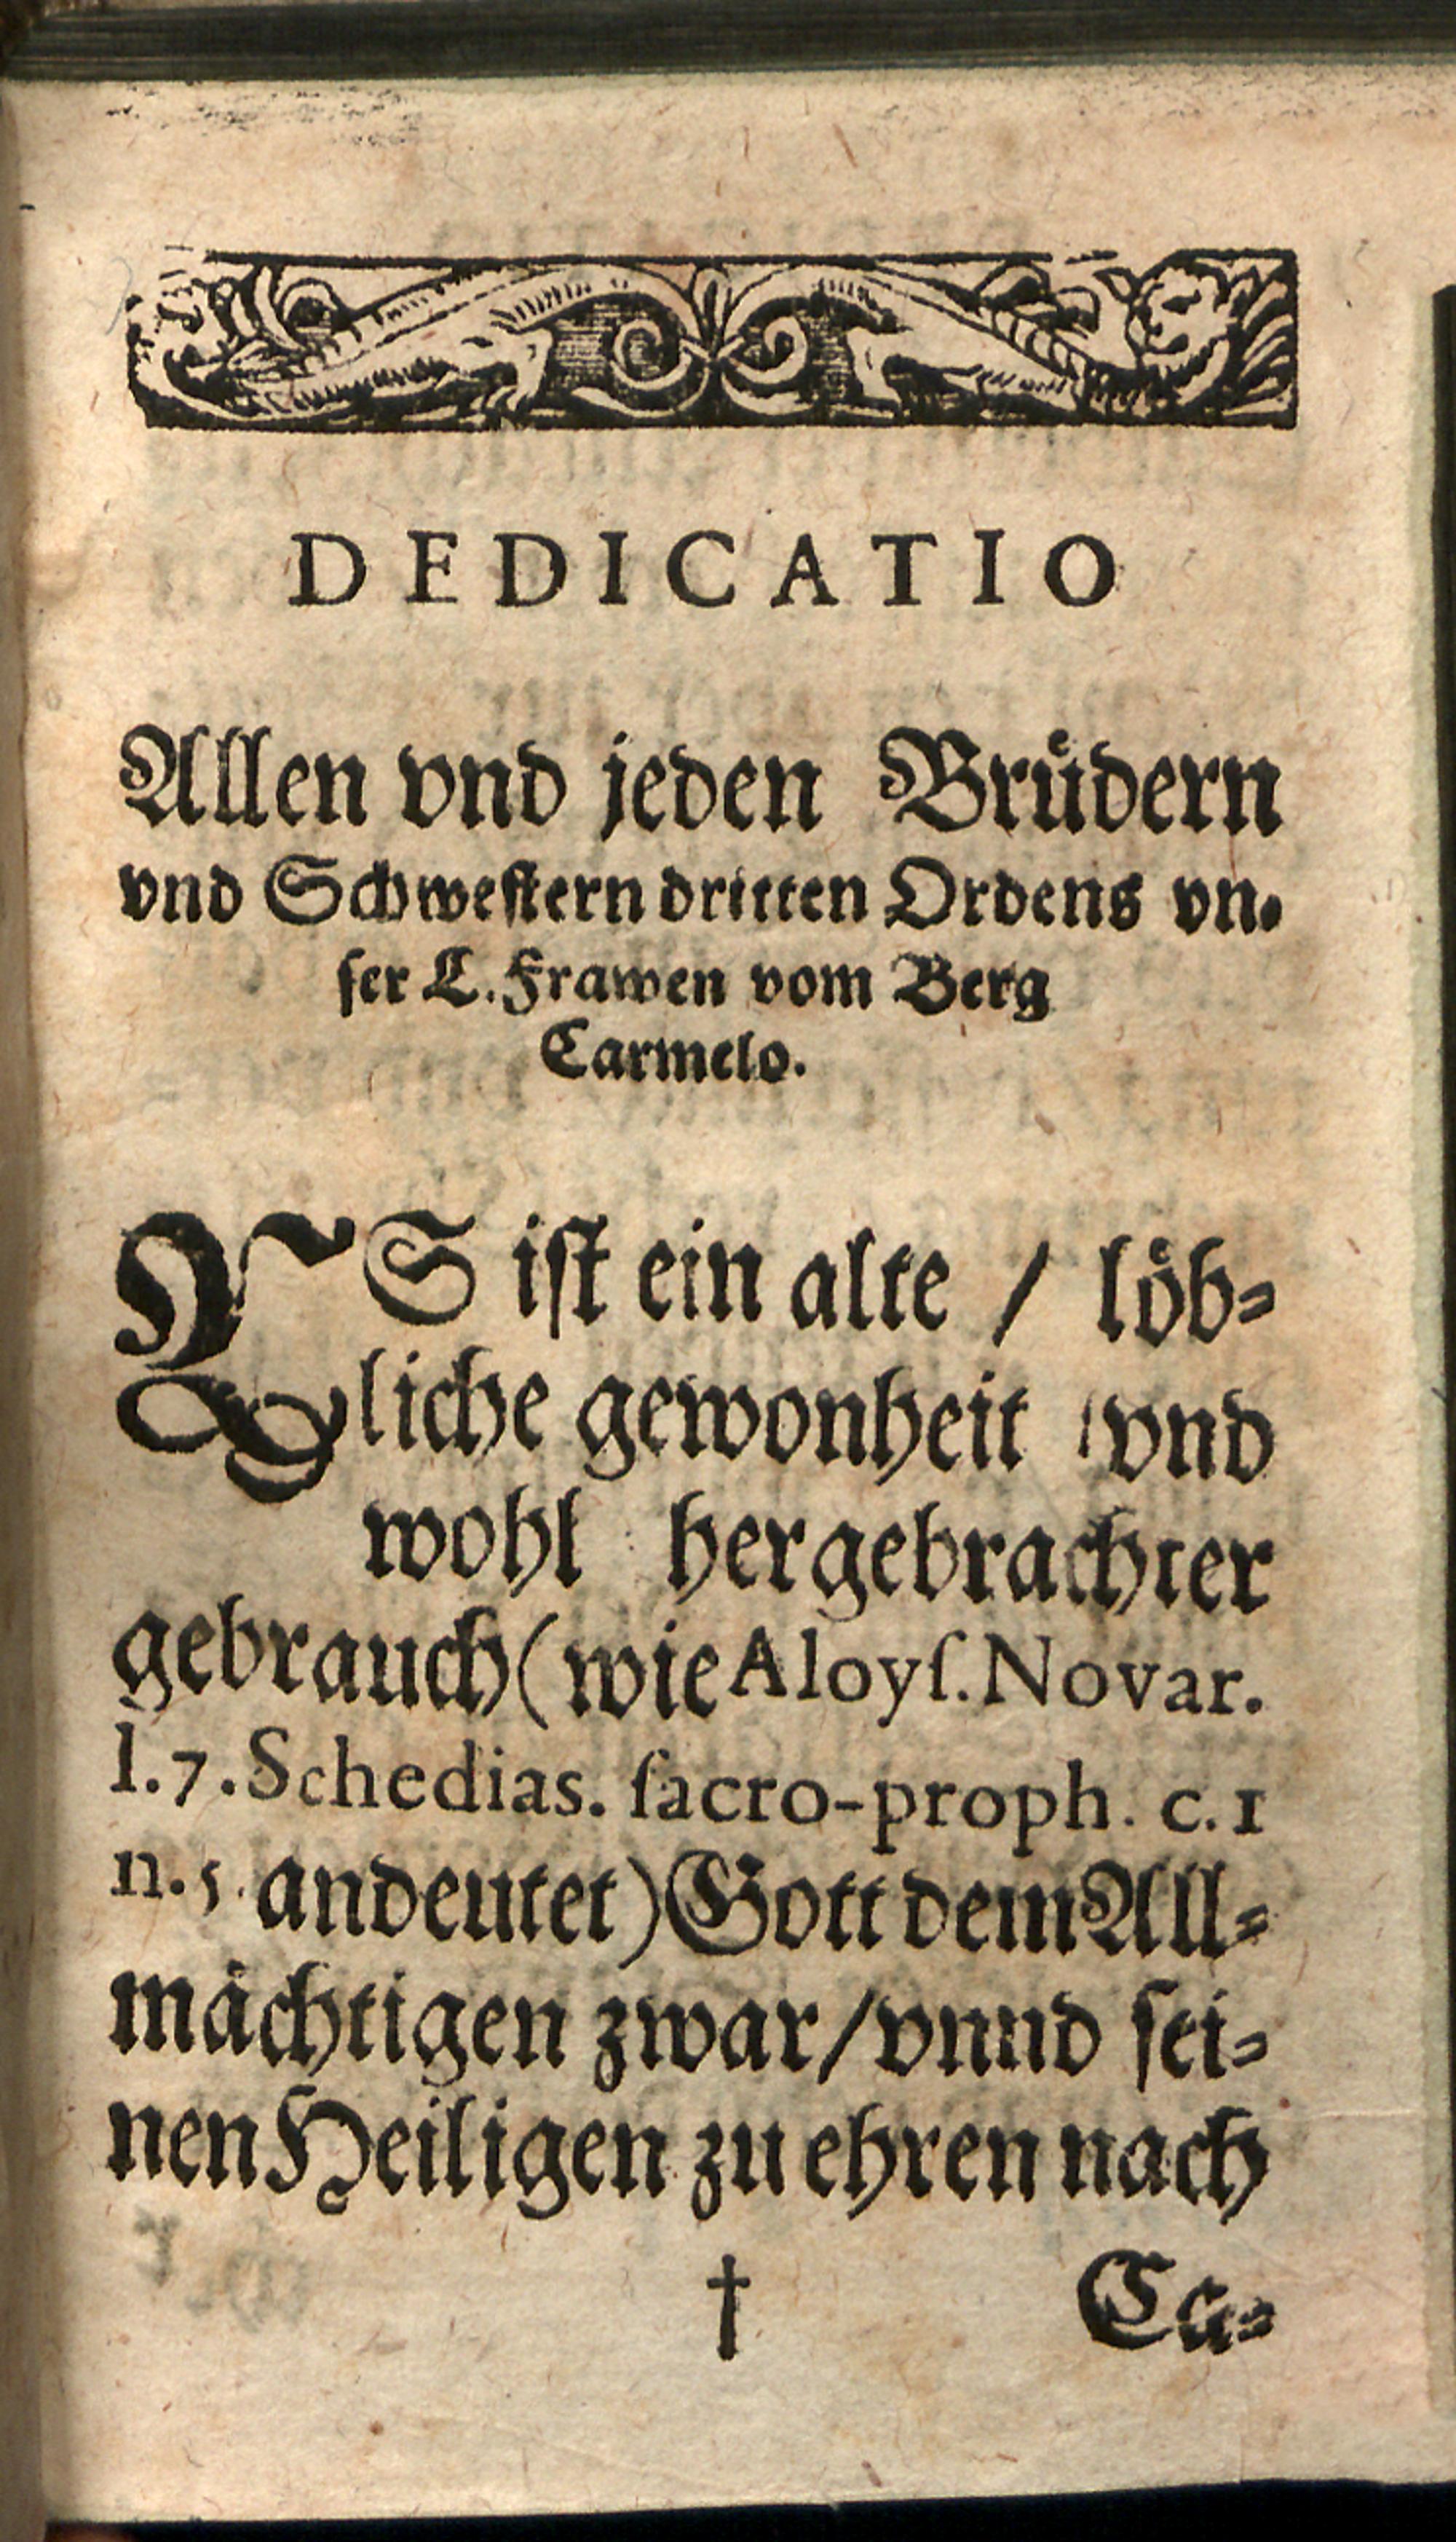 DEDICATIO
Allen vnd jeden Brůdern
vnd Schweſtern dritten Ordens vn-
ſer L. Frawen vom Berg
Carmelo.
ES iſt ein alte / lŏb-
liche gewonheit / vnd
wohl hergebrachter
gebrauch (wie Aloyſ. Novar.
l. 7. Schedias. ſacro-proph. c. 1
n. 5. andeutet) Gott dem All-
måchtigen zwar / vnnd ſei-
nen Heiligen zu ehren nach
† Ca-